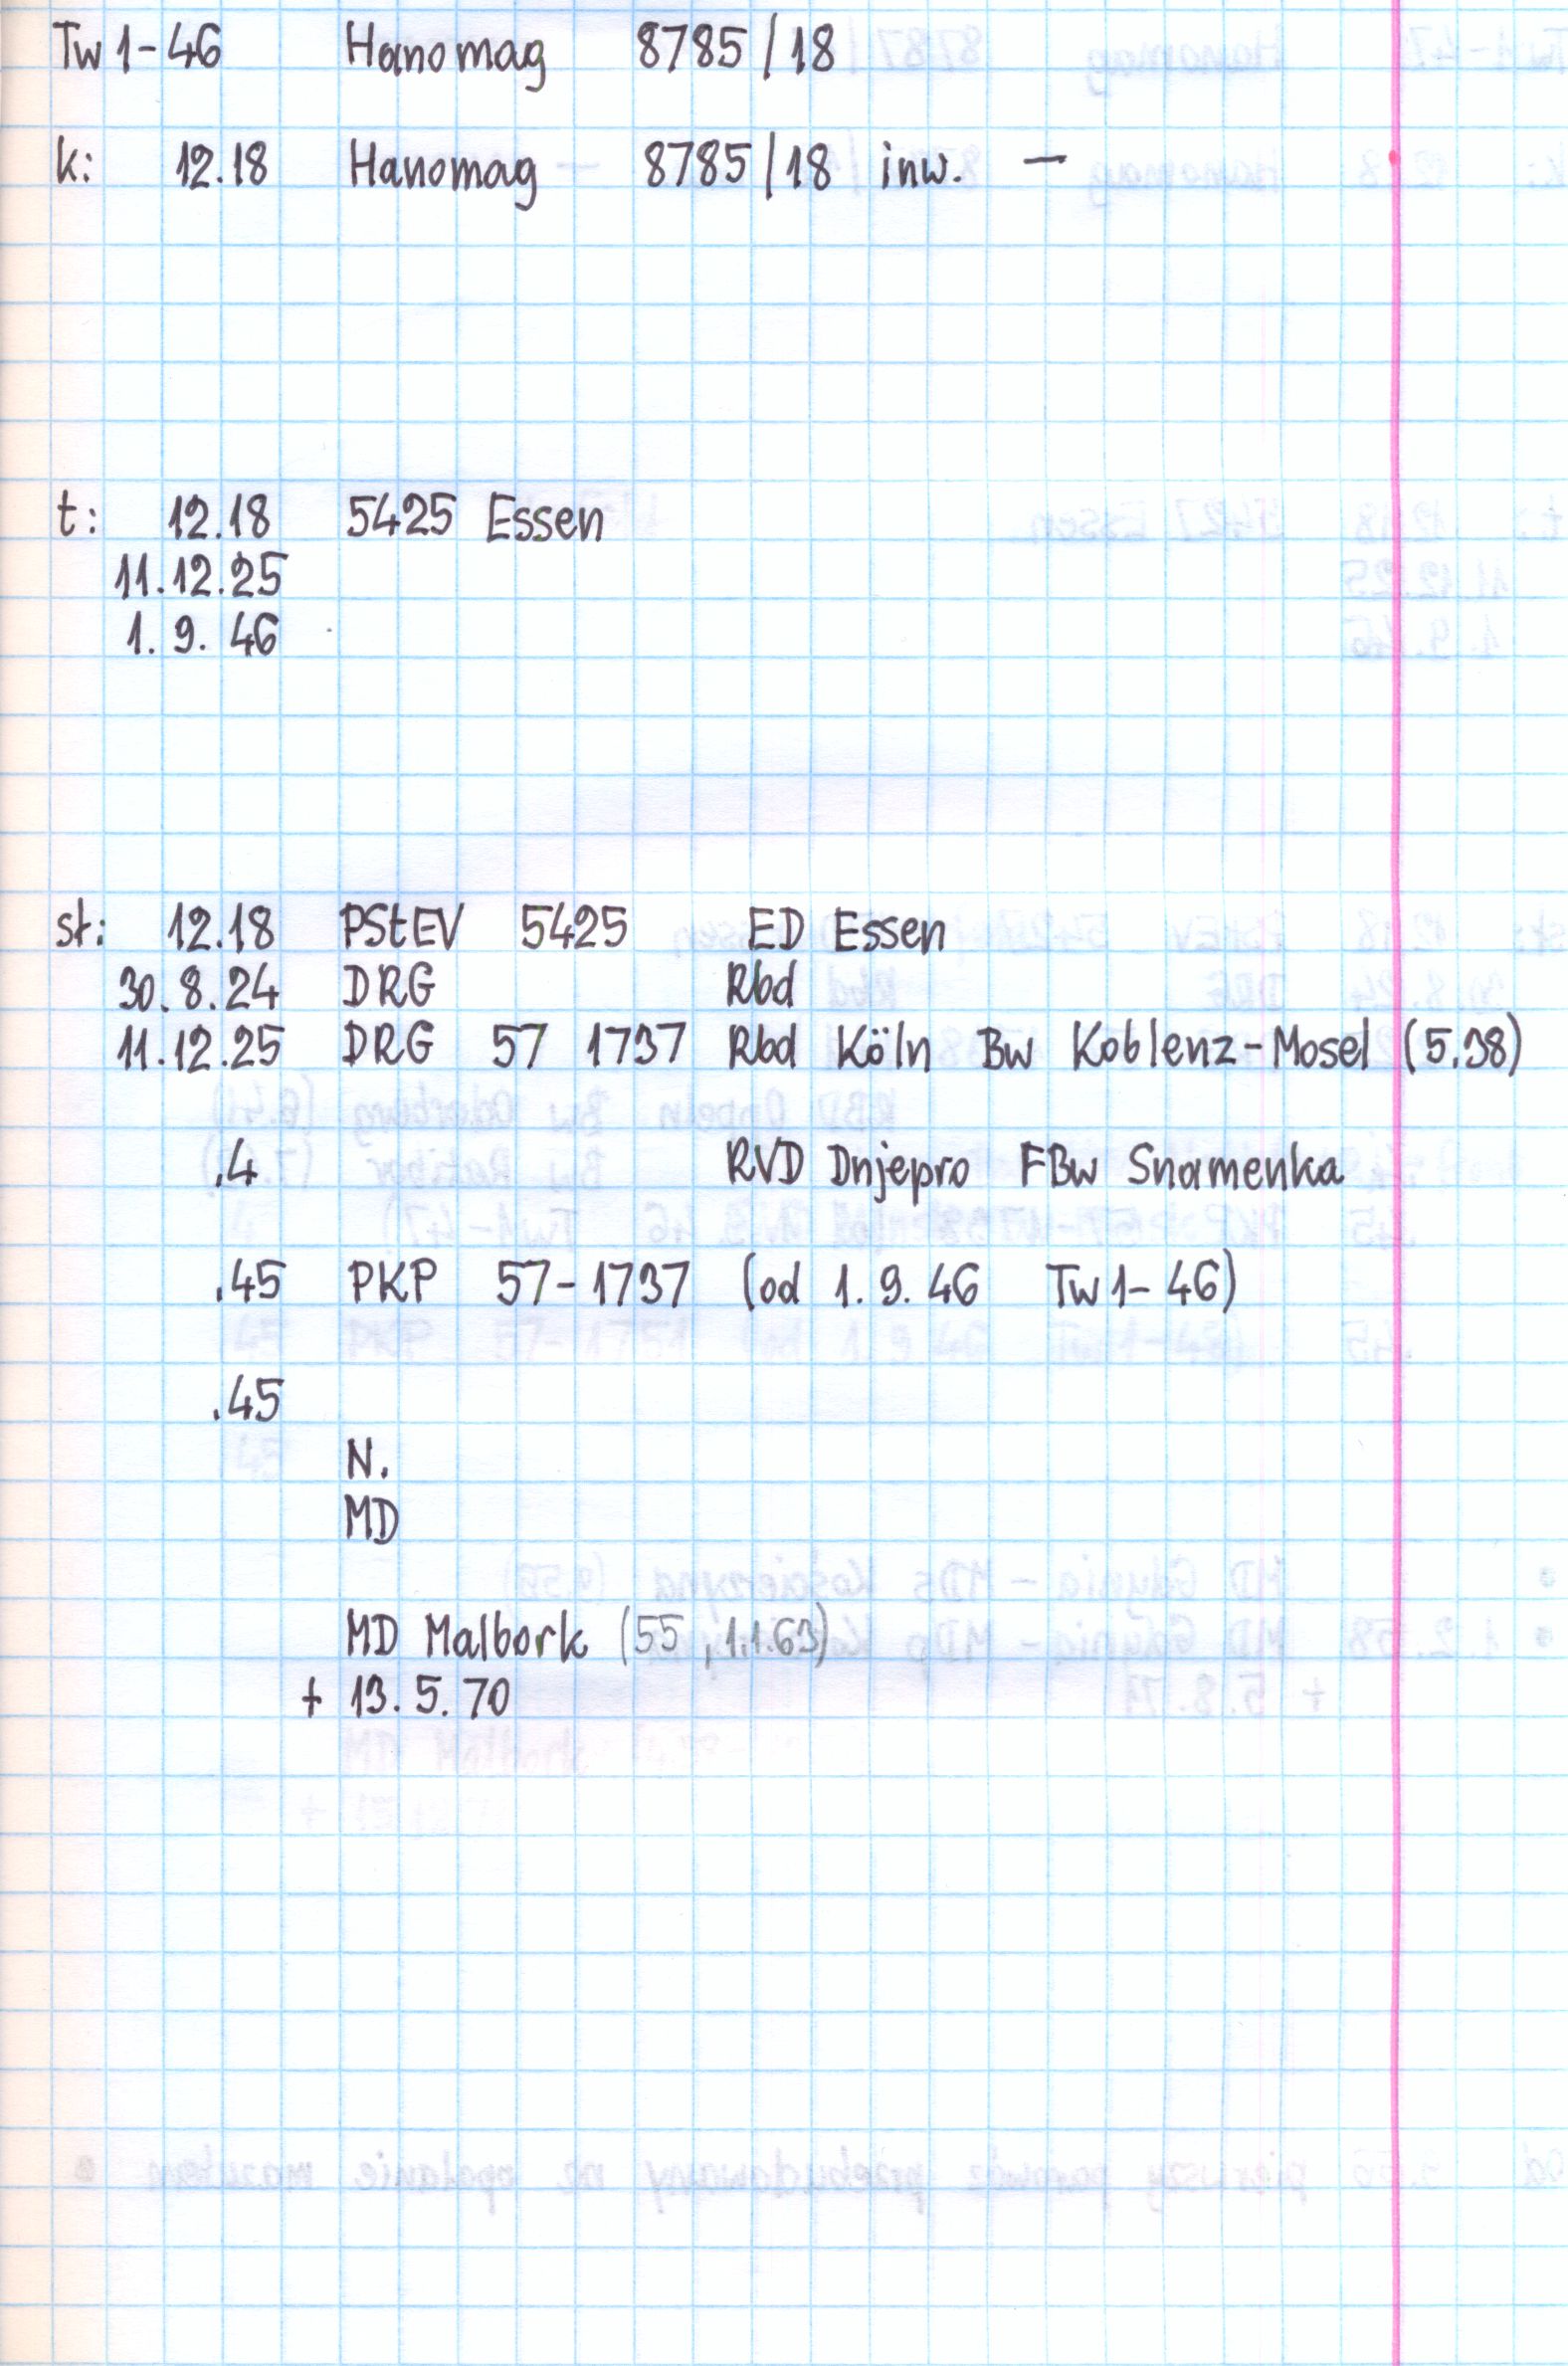 Tw 1-46 Hanomag 8785/18
k: 12.18 Hanomag 8785/18 inw. -
t: 12.18 5425 Essen
11.12.25
1.9.46
st: 12.18 PStEV 5425 ED Essen
30.8.24 DRG Rbd
11.12.25 DRG 57 1737 Rbd Köln Bw Koblenz-Mosel (5.38)
.4 RVD Dnjepro FBw Snamenka
.45 PKP 57-1737 (od 1.9.46 Tw 1-46)
.45
N.
MD
MD Malbork (55, 1.1.63)
+ 13.5.70